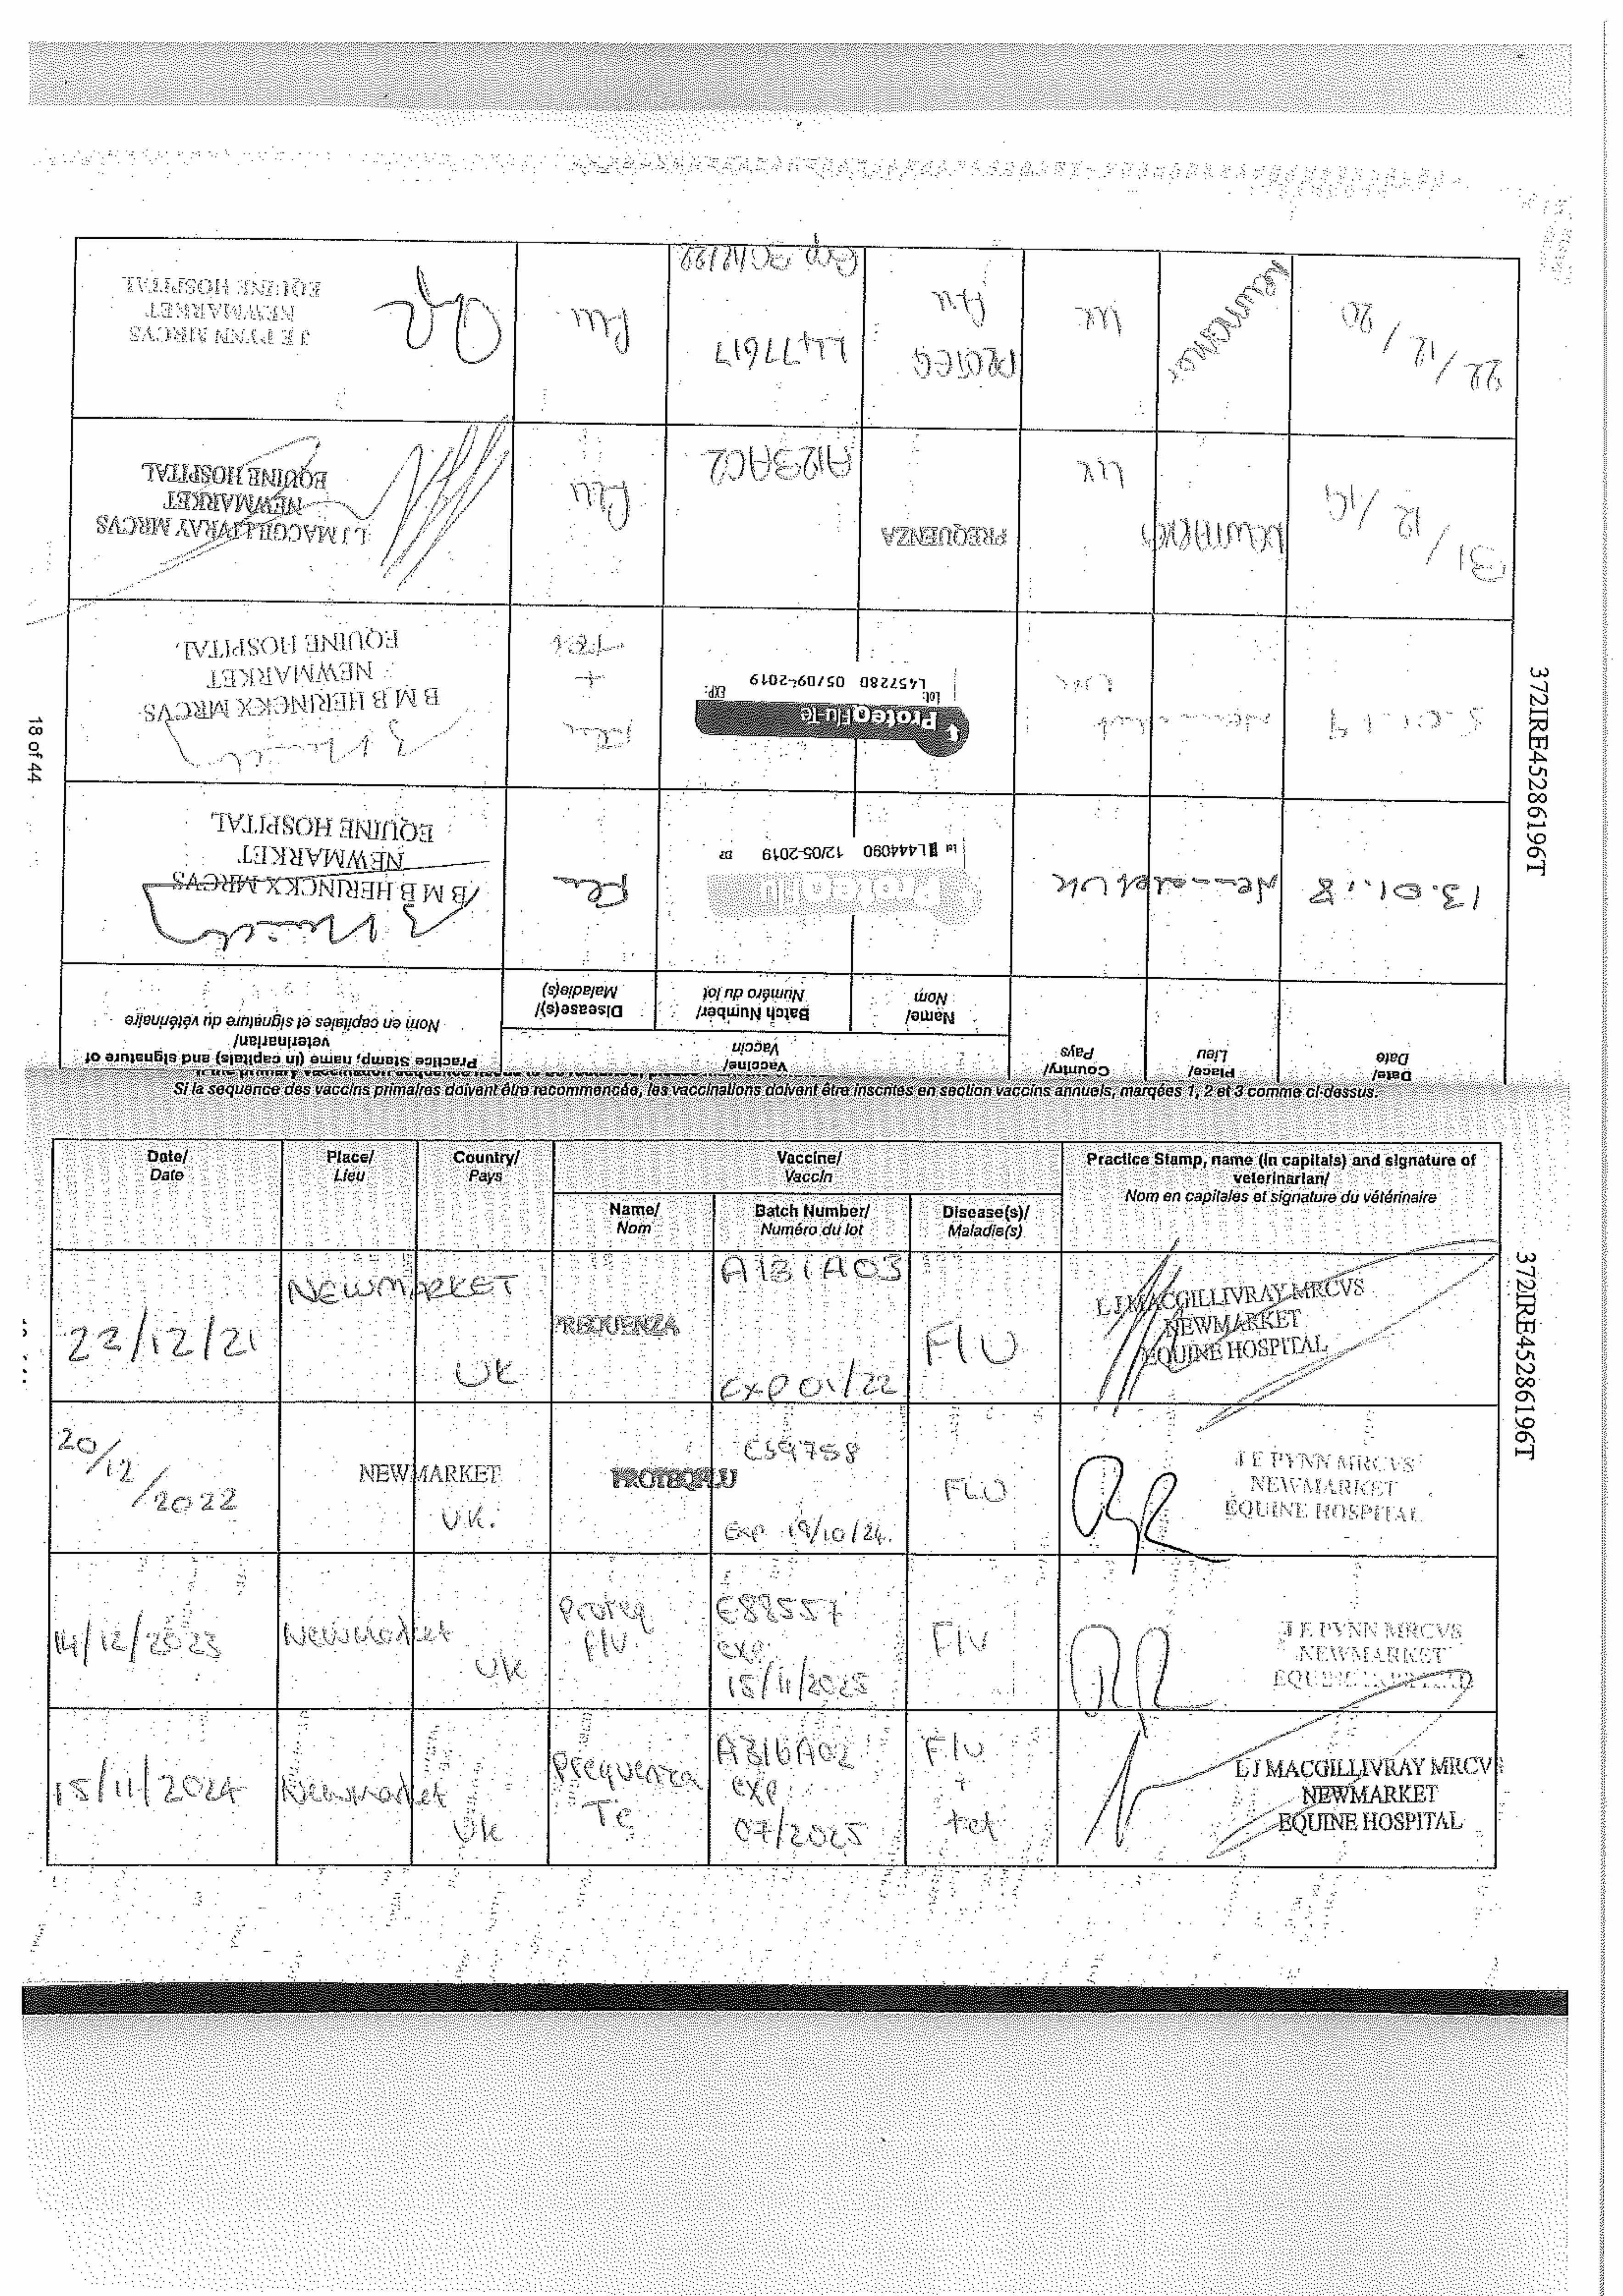 18 of 44
372IRE45286196T
Date/ Place/ Country/ Vaccine/ Practice Stamp, name (in capitals) and signature of
Date Lieu Pays Vaccin veterinarian/
Nom en capitales et signature du vétérinaire
Name/ Batch Number/ Disease(s)/
Nom Numéro du lot Maladie(s)
13.01.18 Newmarket UK ProteqFlu Flu
Lot L444090 12/05-2019
B M B HERINCKX MRCVS
NEWMARKET
EQUINE HOSPITAL
ProteqFlu-Te Flu
Lot: EXP: +
L457280 05/09-2019 Tet
B M B HERINCKX MRCVS
NEWMARKET
EQUINE HOSPITAL
31/12/19 NEWMARKET UK PREQUENZA A123AC2 Flu
L J MACGILLIVRAY MRCVS
NEWMARKET
EQUINE HOSPITAL
22/12/20 Newmarket UK PROTEQ Flu L477617 Flu
J E PYNN MRCVS
NEWMARKET
EQUINE HOSPITAL
Si la sequence des vaccins primaires doivent être recommencée, les vaccinations doivent être inscrites en section vaccins annuels, marqées 1, 2 et 3 comme ci-dessus.
372IRE45286196T
Date/ Place/ Country/ Vaccine/ Practice Stamp, name (in capitals) and signature of
Date Lieu Pays Vaccin veterinarian/
Nom en capitales et signature du vétérinaire
Name/ Batch Number/ Disease(s)/
Nom Numéro du lot Maladie(s)
22/12/21 NEWMARKET UK PREQUENZA A131A03 Flu
Exp 01/22
L J MACGILLIVRAY MRCVS
NEWMARKET
EQUINE HOSPITAL
20/12/2022 NEWMARKET UK. PROTEQFLU E59758 FLU
Exp 19/10/24.
J E PYNN MRCVS
NEWMARKET
EQUINE HOSPITAL
14/12/2023 Newmarket UK Proteq Flu E88557 Flu
exp
15/11/2025
J E PYNN MRCVS
NEWMARKET
EQUINE HOSPITAL
15/11/2024 Newmarket UK Prequenza Te A316A02 Flu + tet
exp
07/2025
L J MACGILLIVRAY MRCVS
NEWMARKET
EQUINE HOSPITAL